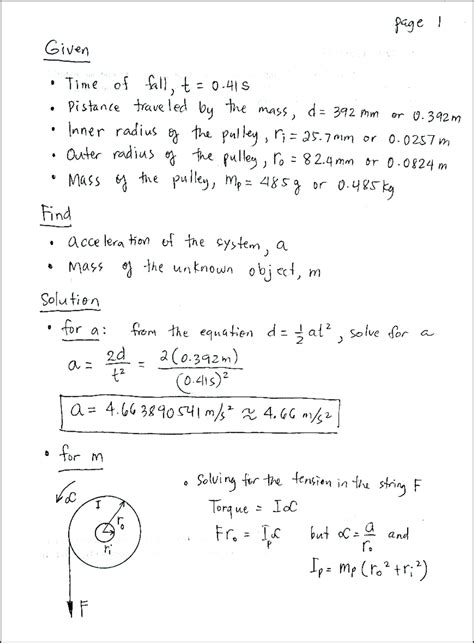 page 1
Given
• Time of fall, t = 0.41s
• Distance traveled by the mass, d = 392 mm or 0.392m
• Inner radius of the pulley, ri = 25.7mm or 0.0257m
• Outer radius of the pulley, ro = 82.4mm or 0.0824m
• Mass of the pulley, mp = 485g or 0.485kg
Find
• acceleration of the system, a
• Mass of the unknown object, m
Solution
• for a: from the equation d = 1/2 at², solve for a
a = 2d/t² = 2(0.392m)/(0.41s)²
a = 4.663890541 m/s² ≈ 4.66 m/s²
• for m
• Solving for the tension in the string F
Torque = I∝
Fro = Ip∝ but ∝ = a/ro and
Ip = mp(ro² + ri²)
∝
I
ro
ri
F